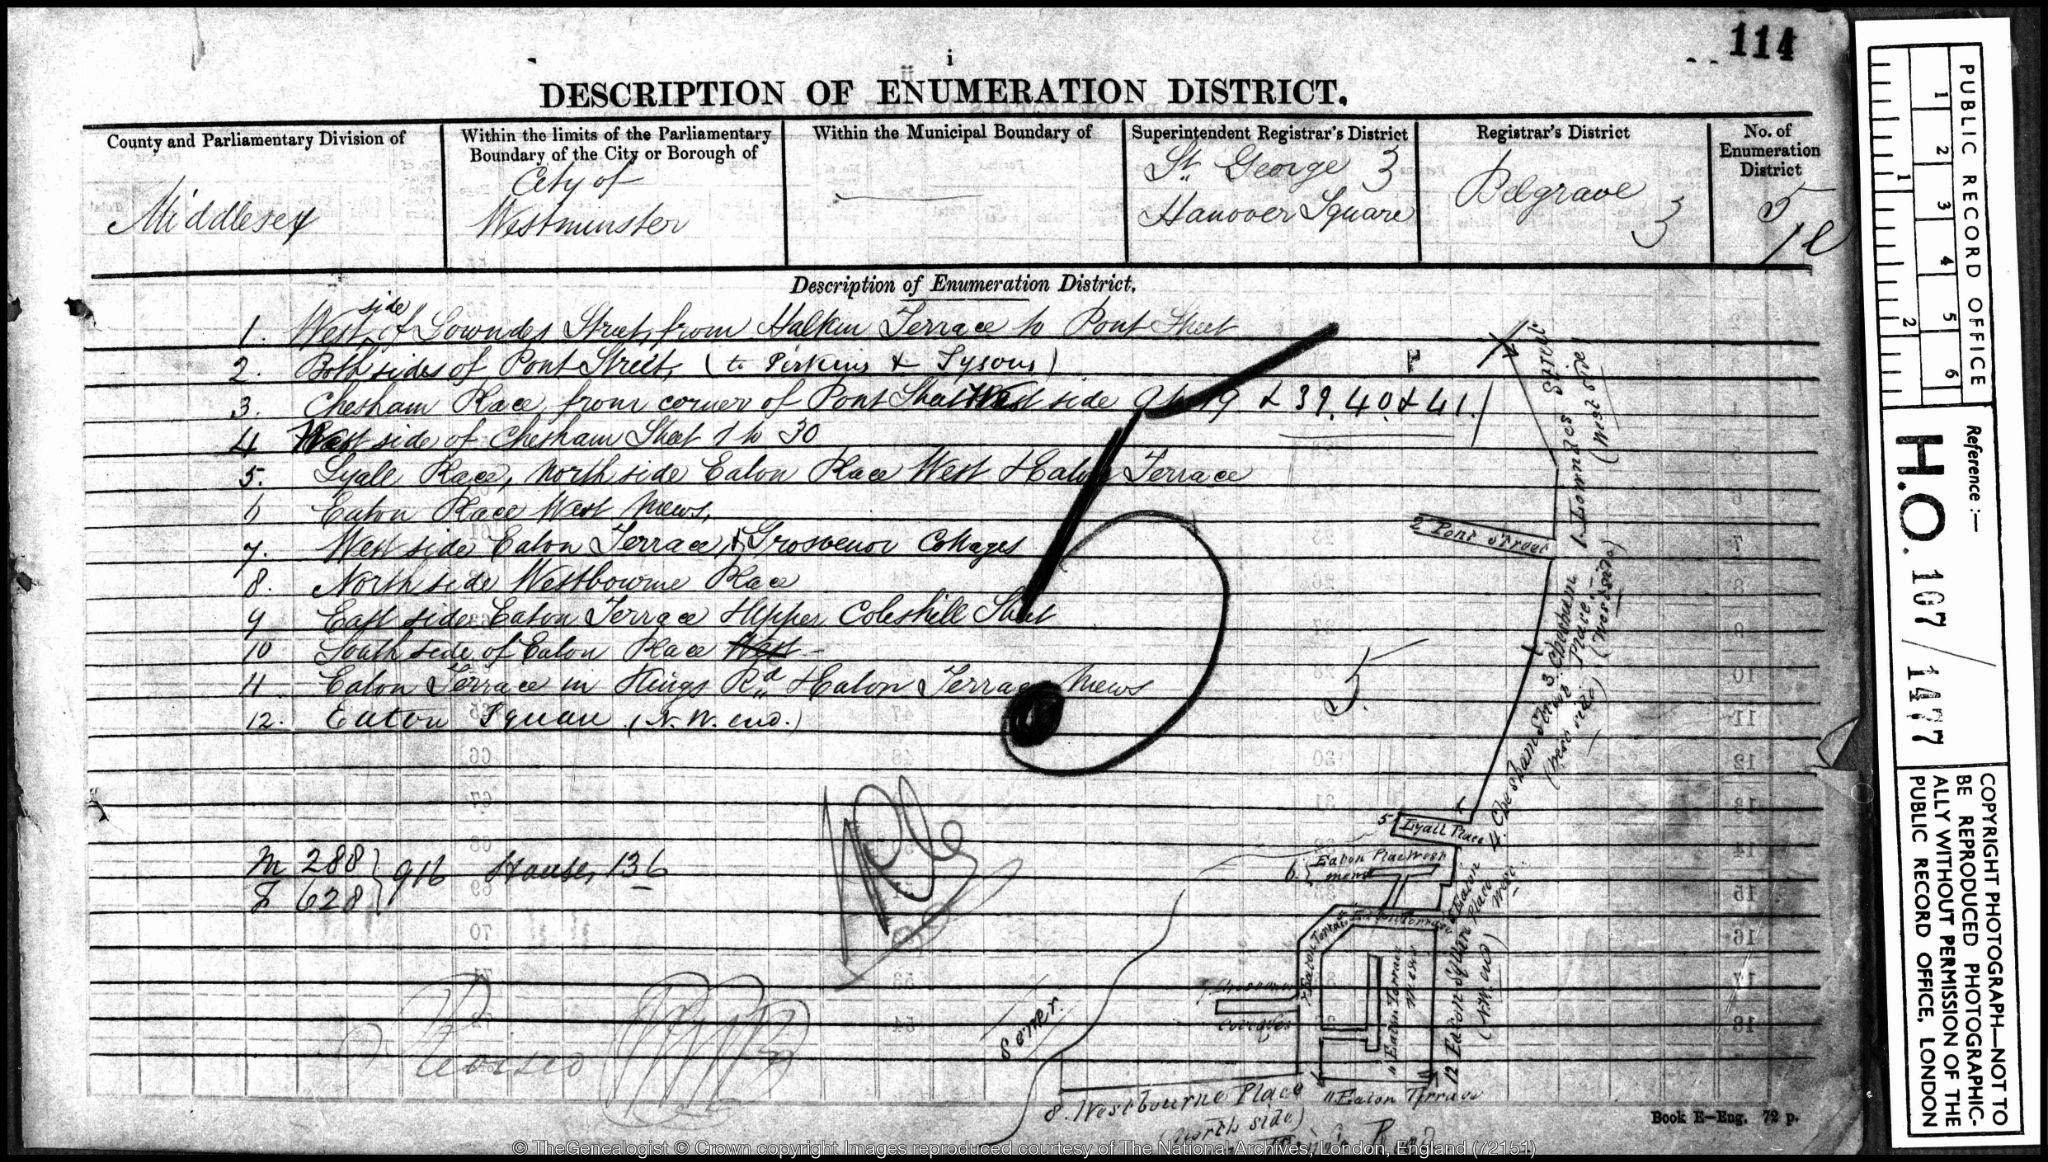 114
i
DESCRIPTION OF ENUMERATION DISTRICT.
County and Parliamentary Division of
Middlesex
Within the limits of the Parliamentary
Boundary of the City or Borough of
City of
Westminster
Within the Municipal Boundary of
Superintendent Registrar's District
St. George 3
Hanover Square
Registrar's District
Belgrave
3
No. of
Enumeration
District
5
Description of Enumeration District.
1. West side of Lowndes Street, from Halkin Terrace to Pont Street
2. Both sides of Pont Street, (to Perkins & Tysons)
3. Chesham Place, from corner of Pont Street West side 9 to 19 & 39, 40 & 41.
4 West side of Chesham Street 1 to 30
5. Lyall Place, North side Eaton Place West & Eaton Terrace
6 Eaton Place West Mews,
7. West side Eaton Terrace, & Grosvenor Cottages
8. North side Westbourne Place
9 East side Eaton Terrace & Upper Coleshill Street
10 South side of Eaton Place West
11. Eaton Terrace in Kings Rd & Eaton Terrace Mews
12. Eaton Square, (N. W. end.)
5
5.
M 288
F 628
916 Houses 136
1. Lowndes Street
(West side)
2 Pont Street
3 Chesham
Place
(West side)
4. Chesham Street
(West side)
5 Lyall Place
6. Eaton Place West
mews
5 Eaton
Place
West
Eaton Terrace
Eaton Terrace
7
Cottages
11 Eaton Terrace
Mews
12 Eaton Square
(N.W. end)
Sewer.
8. Westbourne Place
(North side)
11 Eaton Terrace
King's Road
Book E—Eng. 72 p.
PUBLIC RECORD OFFICE
1 2 3 4 5 6
1 2
Reference :—
H.O. 107 / 1477
COPYRIGHT PHOTOGRAPH—NOT TO
BE REPRODUCED PHOTOGRAPHIC-
ALLY WITHOUT PERMISSION OF THE
PUBLIC RECORD OFFICE, LONDON
© TheGenealogist © Crown copyright Images reproduced courtesy of The National Archives, London, England (72151)